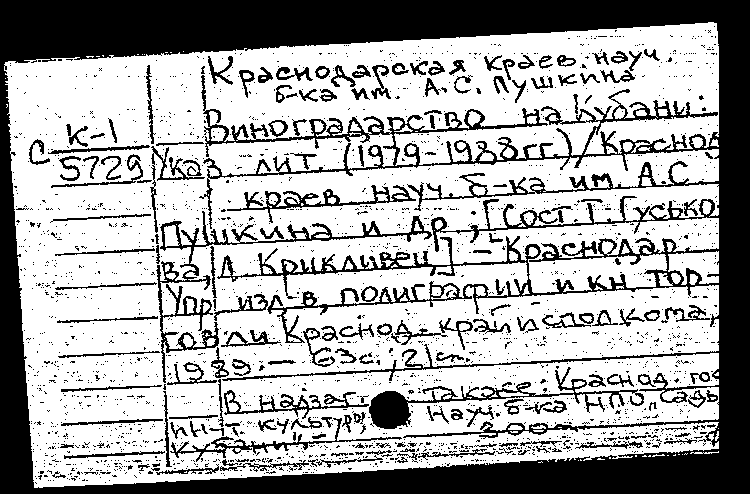 Краснодарская краев. науч.
б-ка им. А.С. Пушкина
Виноградарство на Кубани:
С К-1
5729
Указ. лит. (1979-1988гг.)/Краснод
краев науч. б-ка им. А.С.
Пушкина и др.; [Сост. Т. Гусько-
ва, Л. Крикливец] - Краснодар:
Упр изд-в, полиграфии и кн. тор-
говли Краснод. крайисполкома,
1989. - 63с.; 21см.
В надзаг. также: Краснод. гос
ин-т культуры, Науч. б-ка НПО „Сады
Кубани". - 300